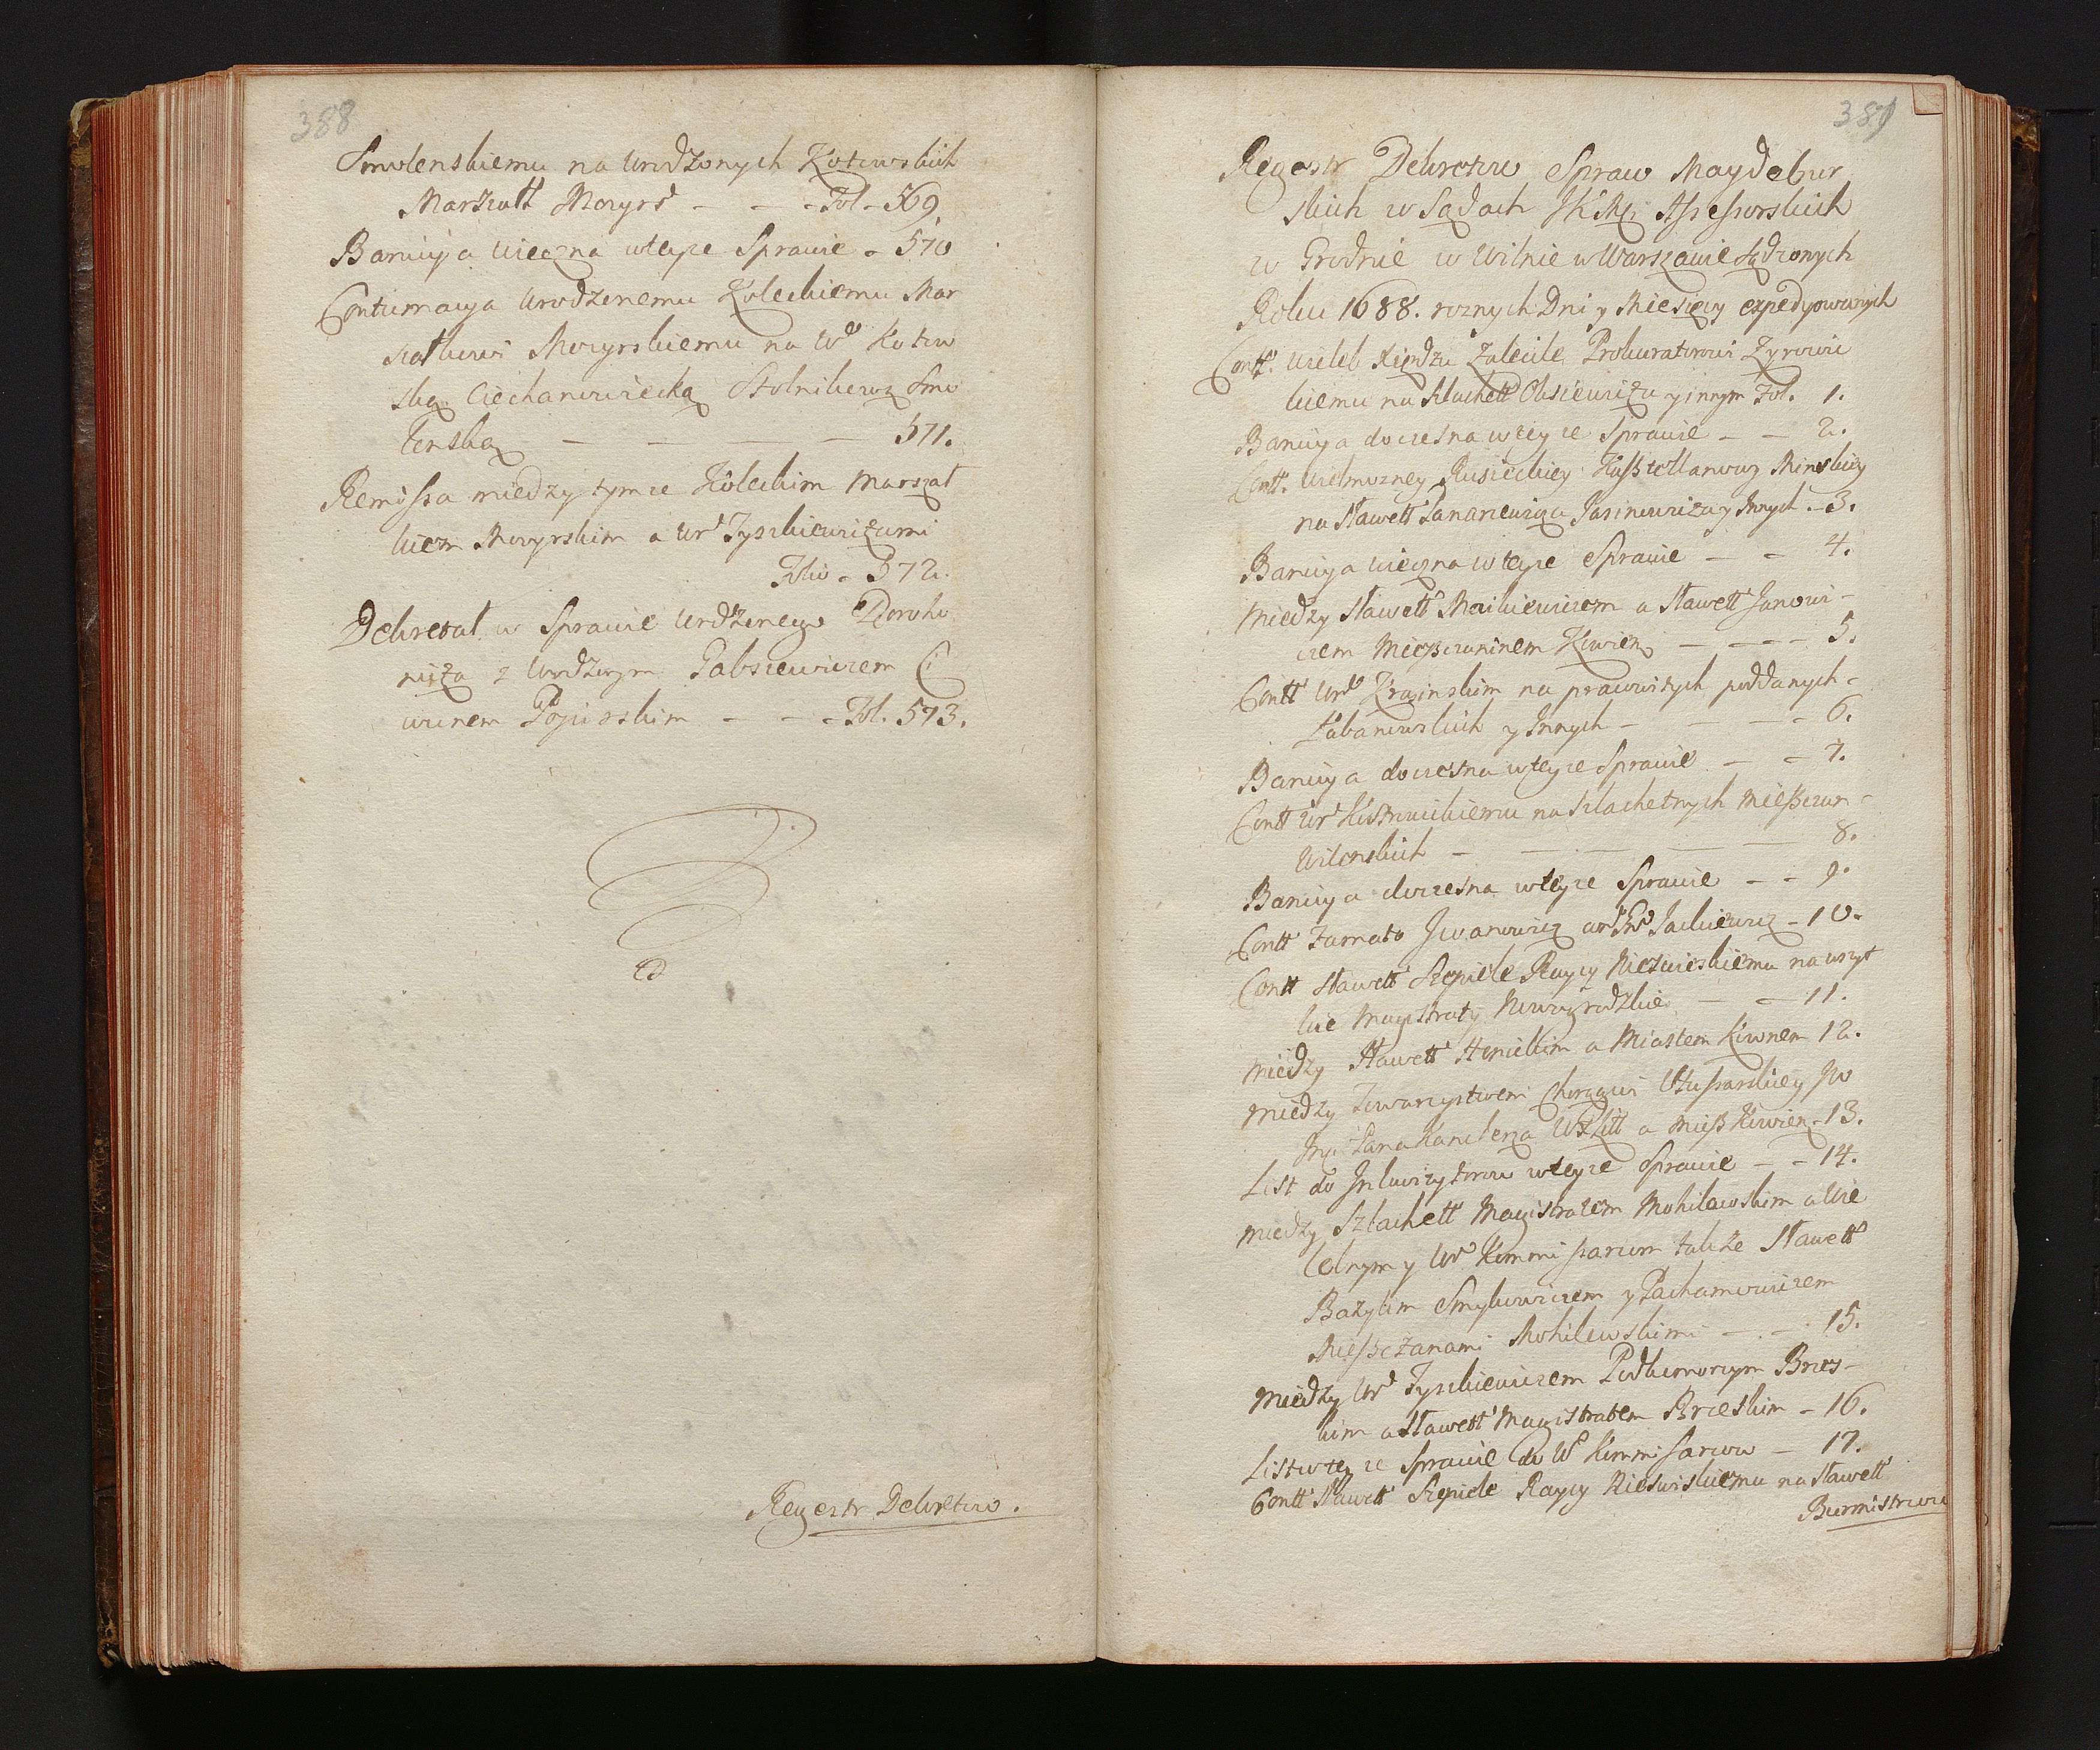 388
Smolenskiemu na Urodzonych Kotowskich
Marszałk Mozyrs - - - Fol - 569.
Banicya wieczna w teyże Sprawie - 570
Contumacya Urodzonemu Koleckiemu Mar
szałkowi Mozyrskiemu na Ur Kotow
ską Ciechanowiecką Stolnikową Smo
leńską - - - - 571.
Remissa między tymże Koleckim Marszał
kiem Mozyrskim a Ur Tyszkiewiczami
Folio - 572.
Dekret w Sprawie Urdzonego Doroho
nicza z Urodzonym Gabszewiczem Ci
wunem Pojurskim - - - Fol. 573.
Regestr Dekretow.
389
Regestr Dekretow Spraw Maydebur
skich w Sądach JKMci Assessorskich
w Grodnie w Wilnie w Warszawie sądzonych
Roku 1688. roznych Dni y Miesięcy expedyowanych
Contt. Wieleb Xiędzu Zalecile Prokuratorowi Zyrowic
kiemu na Szlachett Olesiewicza y innym Fol. 1.
Banicya doczesna w teyże Sprawie - - 2.
Contt. Wielmozney Rusieckiey Kasztellanowey Minskiey
na Sławett Pananiewicza Jasinowicza y Innych - 3.
Banicya wieczna w teyże Sprawie - - 4.
Między Sławett Markiewiczem a Sławett Janowi-
czem Mieyszczaninem Kowien - - - 5.
Contt Urd Krasinskim na pracowitych poddanych -
Łabanowskich y Innych - - - - 6.
Banicya doczesna w teyże Sprawie - - 7.
Contt Ur Kostrowickiemu na szlachetnych Mieszczan -
Wilenskich - - - - - 8.
Banicya doczesna w teyże Sprawie - - 9.
Contt Jwanowicz Jackiewicz - 10.
Contt Sławett Szepiele Raycy Nieswieskiemu na wszyt
kie Magistraty Nowogrodzkie - - 11.
Między Sławett a Miastem Kownem 12.
Między Towarzystwem Chorągwi Ussarskiey Jw
Jmci Pana Kanclerza WXLitt a Miesz Kowien - 13.
List do Inkwizytorow w teyże Sprawie - - 14.
Między Szlachett Magistratem Mohilewskim a Wie
lebnym y Ur Kommissarzem także Sławett
Bazylim Smykowiczem y Pachamowiczem
Mieszczanami Mohilewskimi - - 15.
Między Ur Tyszkiewiczem Podkomorzym Brzes-
kim a Sławett Magistratem Brzeskim - 16.
List w tey że Sprawie do W Kommissarzow - 17.
Contt Sławett Szepiele Raycy Nieswiskiemu na Sławett
Burmistrzow